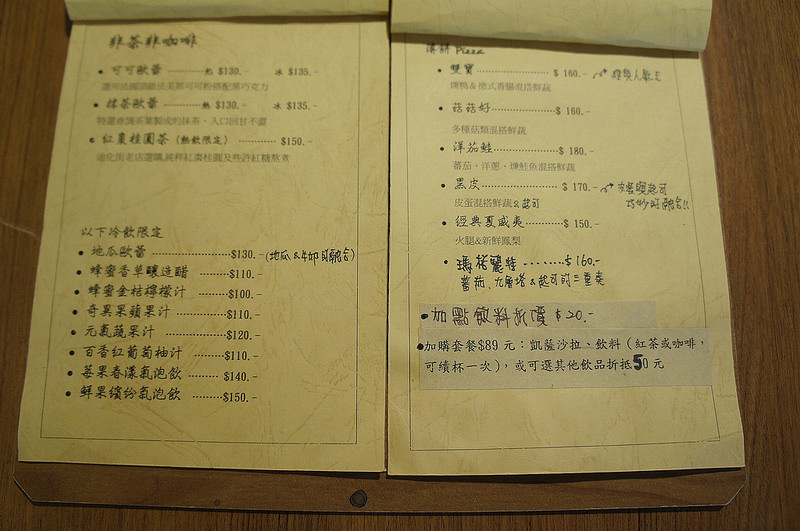 非茶非咖啡
• 可可歐蕾 ------------ 熱 $130.- 冰 $135.-
選用法國頂級法芙娜可可粉搭配黑巧克力
• 抹茶歐蕾 ------------ 熱 $130.- 冰 $135.-
特選春識茶葉製成的抹茶、入口回甘不澀
• 紅棗桂圓茶 (熱飲限定) ---------- $150.-
迪化街老店選購,純粹紅棗桂圓及些許紅糖熬煮
以下冷飲限定
• 地瓜歐蕾 -----------------$130.- (地瓜&牛奶的融合)
• 蜂蜜香草釀造醋 -------$110.-
• 蜂蜜金桔檸檬汁 -------$100.-
• 奇異果蘋果汁 ----------$110.-
• 元氣蔬果汁 ------------$120.-
• 百香紅葡萄柚汁 -------$110.-
• 莓果春漾氣泡飲 ------- $140.-
• 鮮果繽紛氣泡飲 -------$150.-
薄餅 Pizza
• 雙寶 -------------------- $ 160.-
燻鴨&德式香腸混搭鮮蔬
• 菇菇好 ----------------$ 160.-
多種菇類混搭鮮蔬
• 洋茄鮭 ---------------- $ 180.-
蕃茄、洋蔥、燻鮭魚混搭鮮蔬
• 黑皮 -------------------- $ 170.-
皮蛋混搭鮮蔬&起司
• 經典夏威夷 ---------- $ 150.-
火腿&新鮮鳳梨
• 瑪格麗特 -------- $ 160.-
蕃茄、九層塔&起司的三重奏
• 加點飲料折價 $20.-
•加購套餐$89 元：凱薩沙拉、飲料（紅茶或咖啡，
可續杯一次），或可選其他飲品折抵50 元